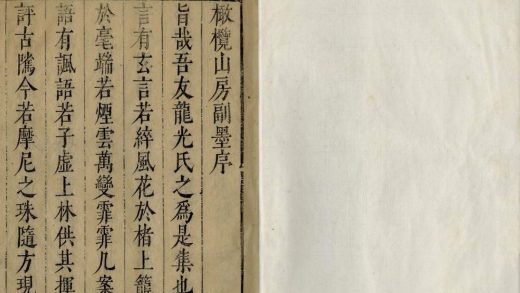 橄欖山房副墨序
旨哉吾友龍光氏之為是集也
言有玄言若綷風花於楮上籠
於毫端若煙雲萬變霏霏几案
語有諷語若子虛上林供其揮
評古隲今若摩尼之珠隨方現